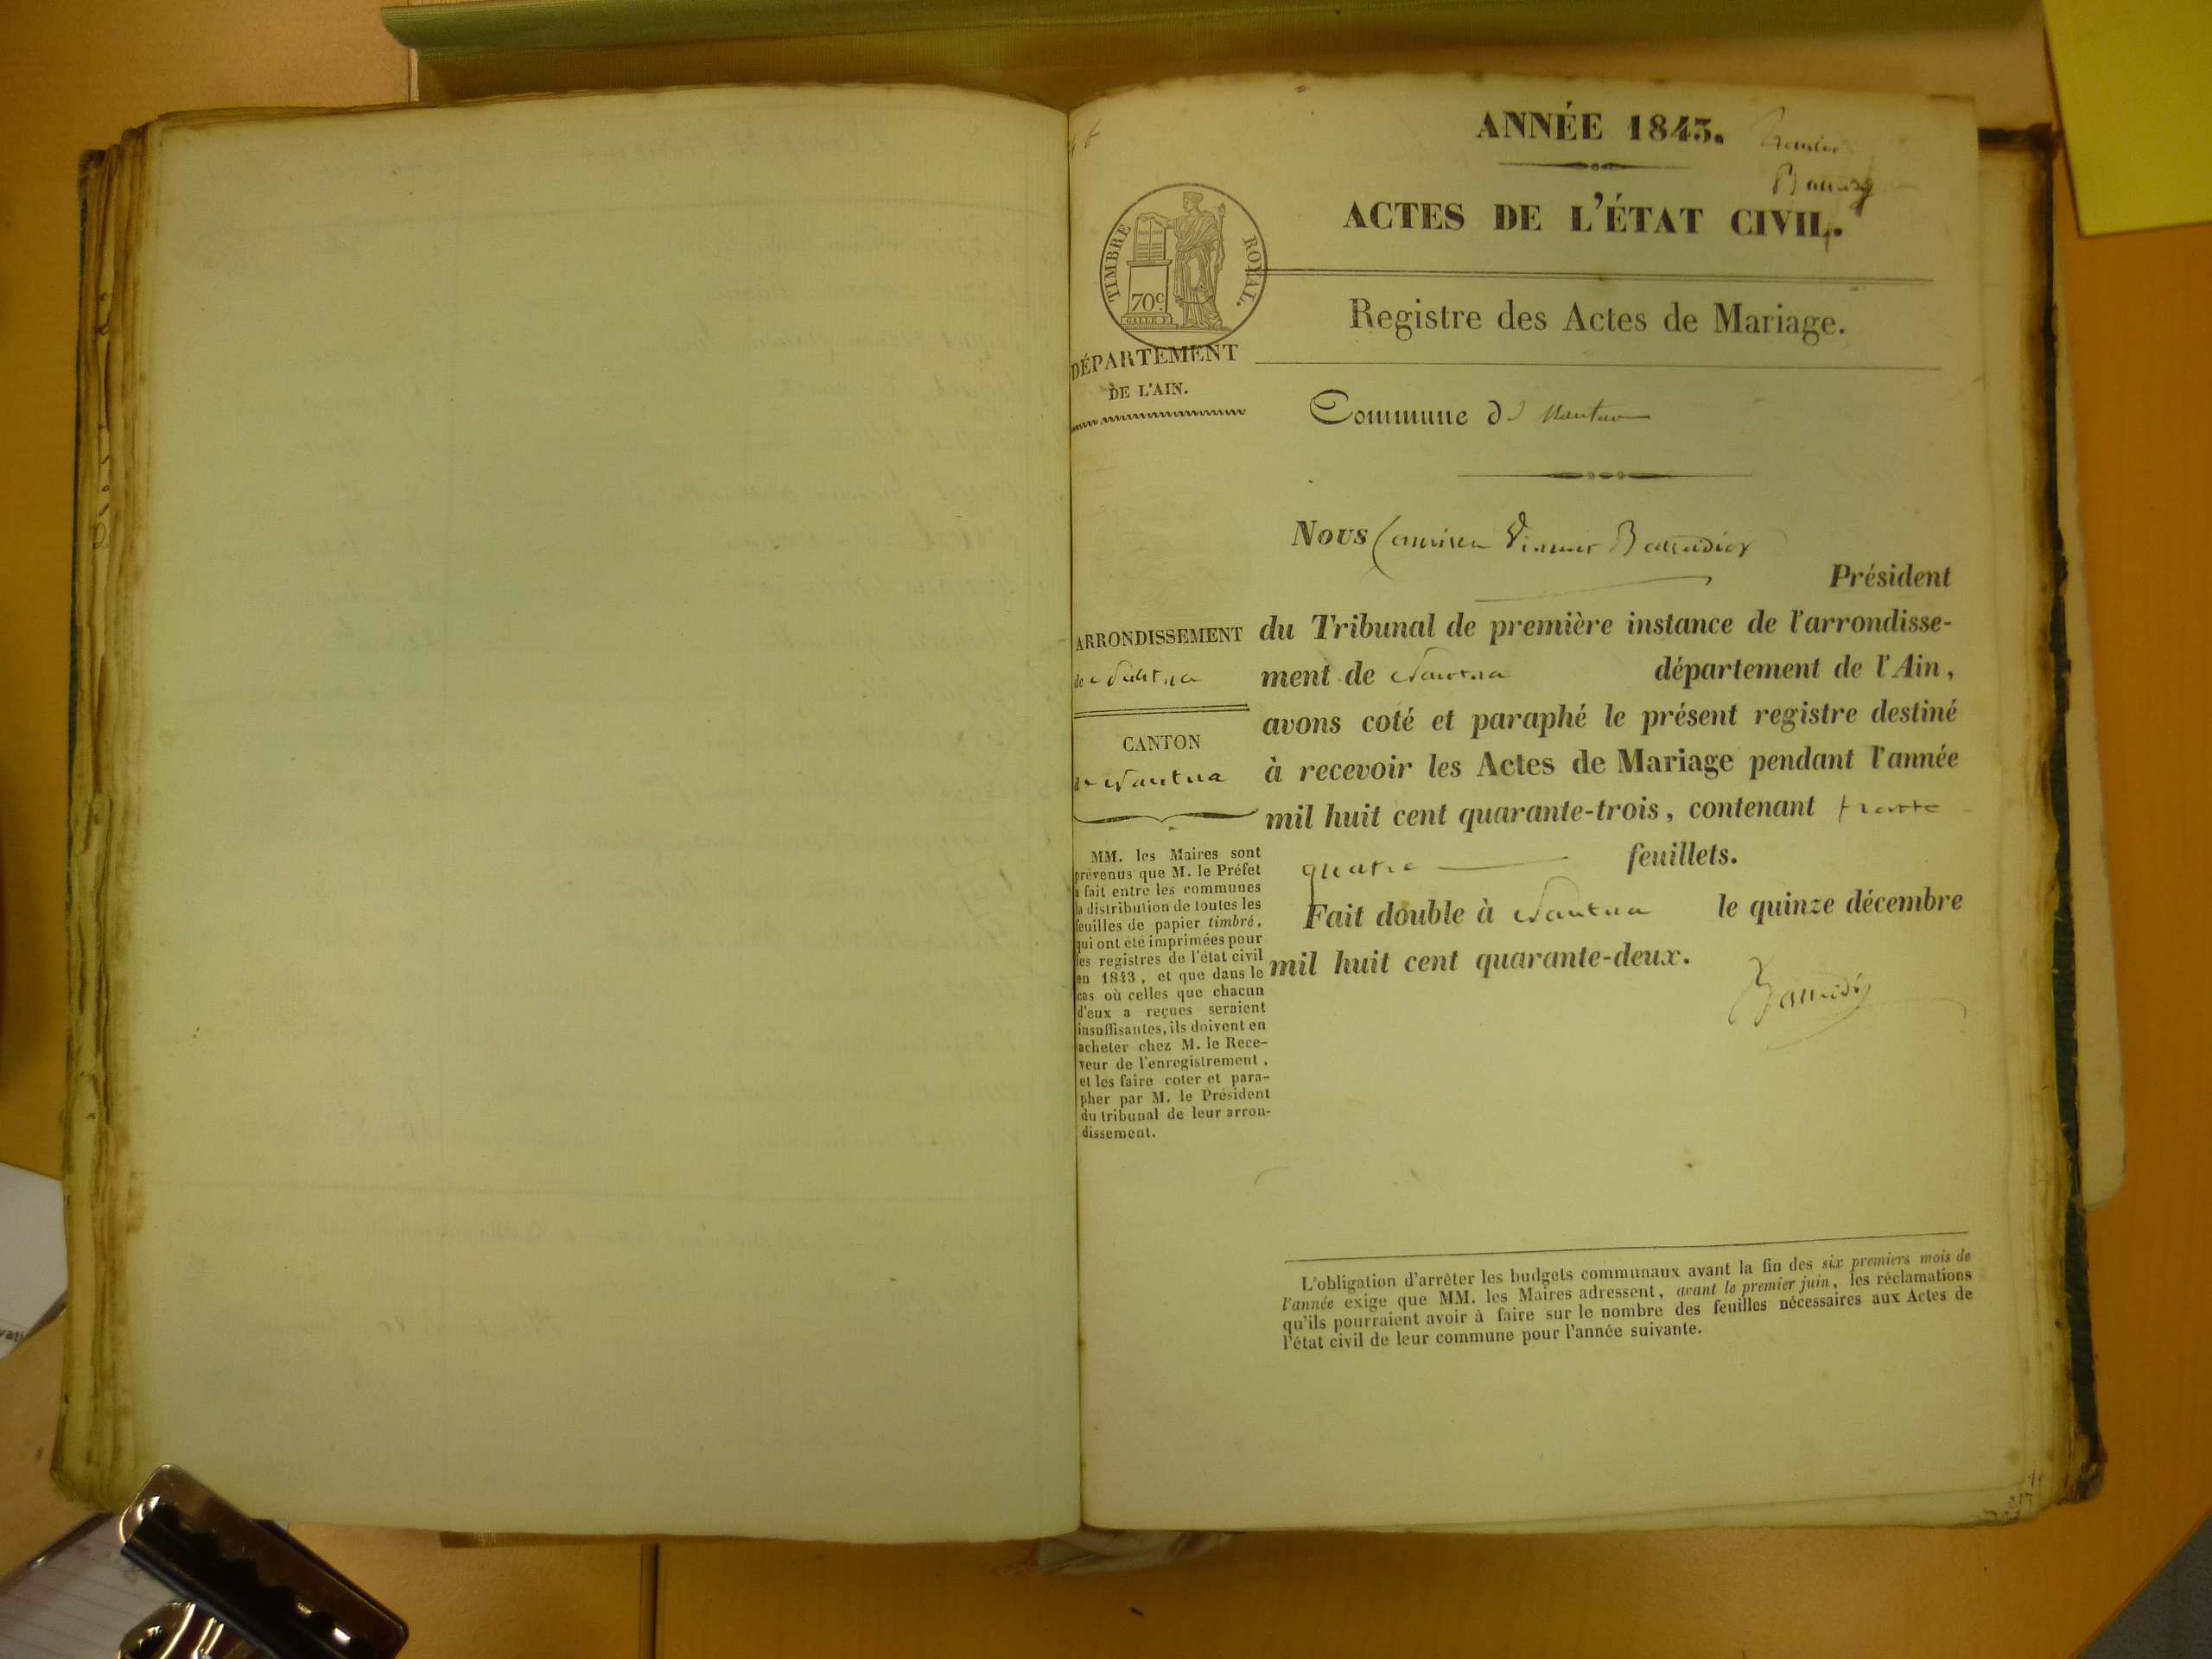 ANNÉE 1843.
ACTES DE L'ÉTAT CIVIL.
TIMBRE ROYAL.
70c.
GALLE F.
Registre des Actes de Mariage.
DÉPARTEMENT
DE L'AIN.
Commune de Nantua
Nous
Président
ARRONDISSEMENT
de Nantua
CANTON
de Nantua
du Tribunal de première instance de l'arrondisse-
ment de Nantua département de l'Ain,
avons coté et paraphé le présent registre destiné
à recevoir les Actes de Mariage pendant l'année
mil huit cent quarante-trois, contenant trente
quatre feuillets.
Fait double à Nantua le quinze décembre
mil huit cent quarante-deux.
MM. les Maires sont
prévenus que M. le Préfet
a fait entre les communes
la distribution de toutes les
feuilles de papier timbré,
qui ont été imprimées pour
les registres de l'état civil
en 1843, et que dans le
cas où celles que chacun
d'eux a reçues seraient
insuffisantes, ils doivent en
acheter chez M. le Rece-
veur de l'enregistrement,
et les faire coter et para-
pher par M. le Président
du tribunal de leur arron-
dissement.
L'obligation d'arrêter les budgets communaux avant la fin des six premiers mois de
l'année exige que MM. les Maires adressent, avant le premier juin, les réclamations
qu'ils pourraient avoir à faire sur le nombre des feuilles nécessaires aux Actes de
l'état civil de leur commune pour l'année suivante.